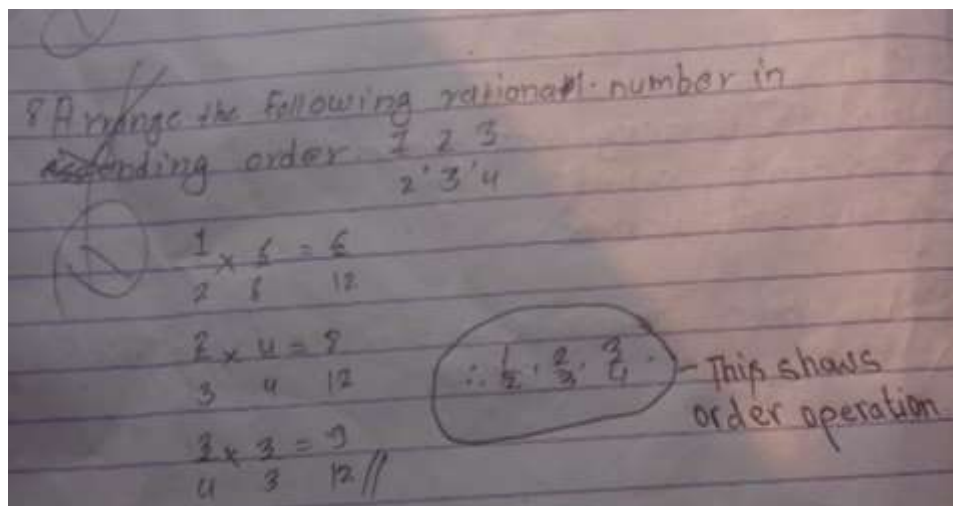 8 Arrange the following rational. number in
ascending order 1/2, 2/3, 3/4
1/2 × 6/6 = 6/12
2/3 × 4/4 = 8/12
∴ 1/2, 2/3, 3/4.
- This shows
order operation
3/4 × 3/3 = 9/12 //